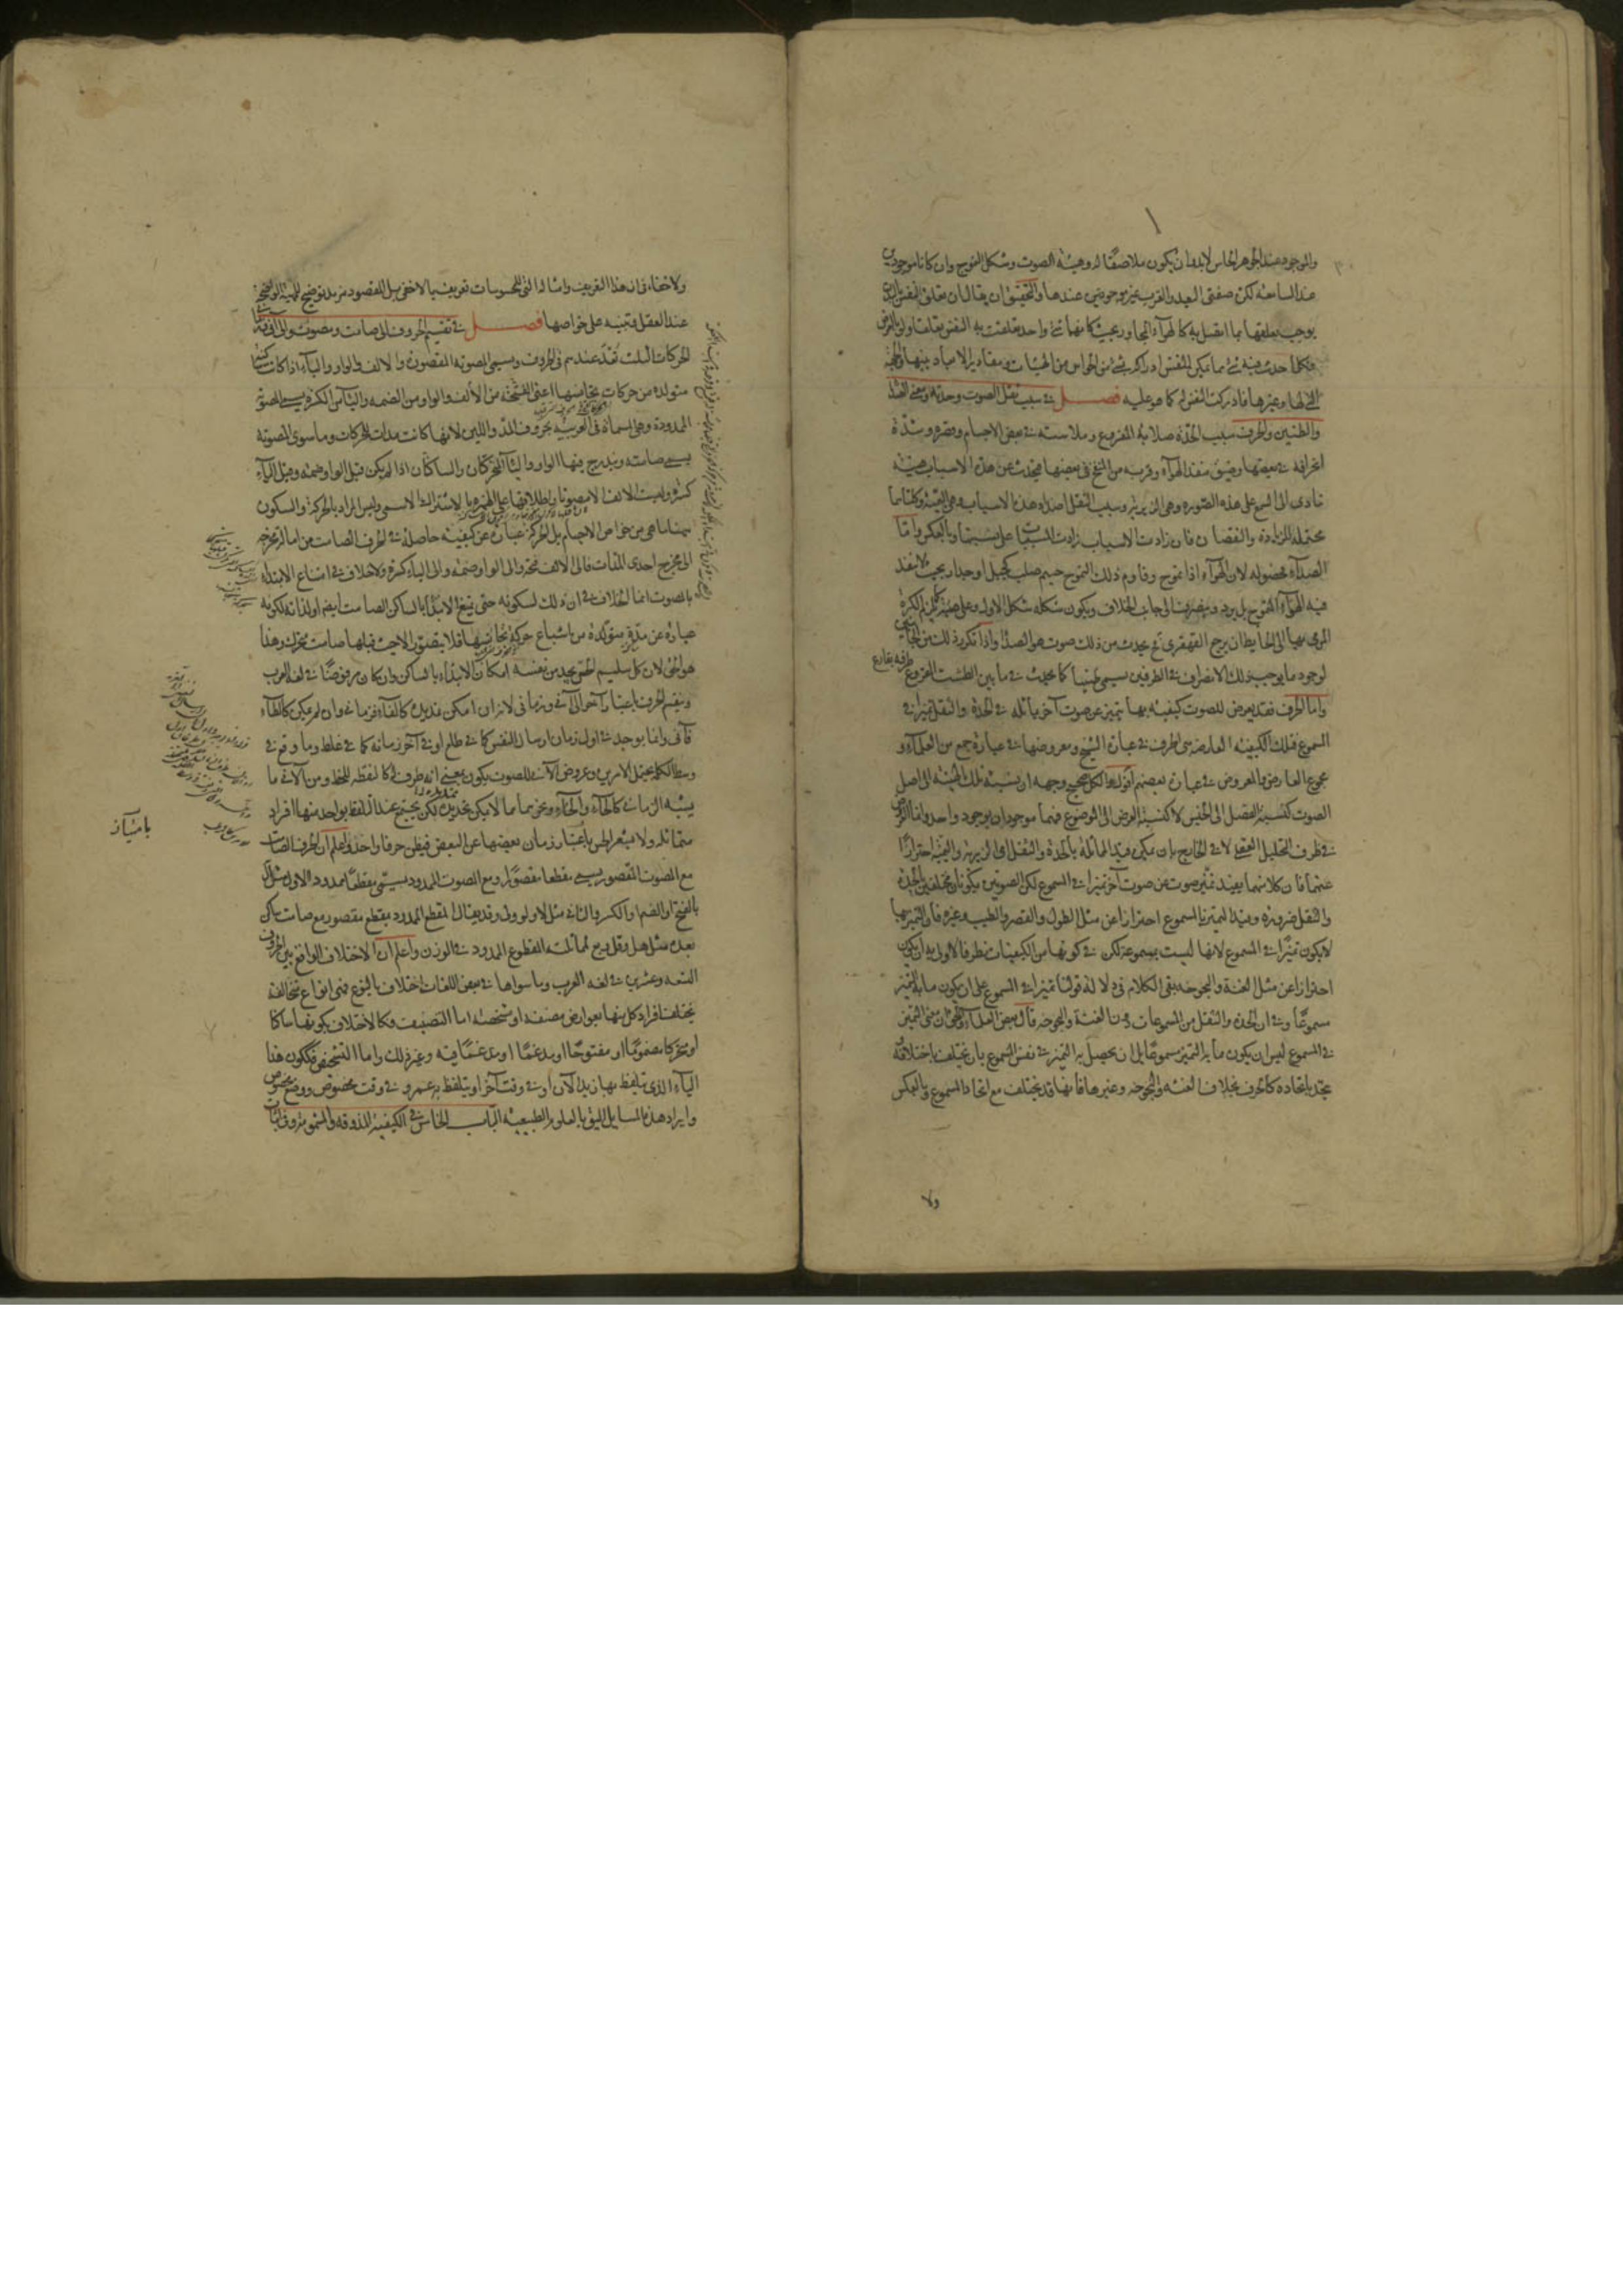 والموجود عند الجوهر الحاس لابد وان يكون ملاصقا له وهيئة الصوت وشكل التموج وان كانا موجودين
عند السامعة لكن صفتى البعد والقرب غير موجودتين عندها والتحقيق ان يقال ان تعلق النفس بالبدن
يوجب تعلقها بما اتصل به كالهوآء المجاور بحيث كانهما شئ واحد تعلقت به النفس تعلقا ولو بالعرض
فكلما حدث فيه شئ مما يمكن للنفس ادراكه بشئ من الحواس من الهيئات ومقادير الابعاد بينهما والجهة
التى لها وغيرها فادركت النفس له كما هو عليه فصل فى سبب ثقل الصوت وحدته ومعنى الصدا
والطنين والحرف سبب الحدة صلابة المقروع وملاسته فى بعض الاجسام وقصره وشدة
انحرافه فى بعضها وضيق منفذ الهوآء وقربه من المنفخ فى بعضها فيحدث عن هذه الاسباب هيئة
تتأدى الى السمع على هذه الصورة وهى الزيرية وسبب الثقل اضداد هذه الاسباب وهى البمية وكلتاهما
محتملة للزيادة والنقصان فان زادت الاسباب زادت المسببات على نسبتها وبالعكس واما
الصداء فحصوله لان الهوآء اذا تموج وقاوم ذلك التموج جسم صلب كجبل او جدار بحيث لا ينفذ
فيه الهوآء المتموج بل يرد وينصرف الى جانب الخلاف ويكون شكله شكل الاول وعلى هيئته كما يلزم الكرة
المرمى بها الى الحايط ان يرجع القهقرى ثم يحدث من ذلك صوت هو الصدا واذا تكرر ذلك من الجانبين
لوجود ما يوجب ذلك الانصراف فى الطرفين سمى طنينا كما يحدث فى ما بين الطشت المقروع طرفه بقارع
واما الحرف فقد يعرض للصوت كيفية بها يتميز عن صوت آخر يماثله فى الحدة والثقل تميزا فى
المسموع فتلك الكيفية العارضة هى الحرف فى عبارة الشيخ ومعروضها فى عبارة جمع من العلمآء و
مجموع العارض والمعروض فى عبارة بعضهم اقول والكل صحيح وجهه ان نسبة تلك الهيئة الى اصل
الصوت كنسبة الفصل الى الجنس لا كنسبة العرض الى الموضوع فهما موجودان بوجود واحد وانما العروض
فى ظرف التحليل العقلى لا فى الخارج بان يكون قيد المماثلة بالحدة والثقل اى الزيرية والبمية احترازا
عنهما فان كلا منهما يفيد تميز صوت عن صوت آخر تميزا فى المسموع لكن الصوتين يكونان مختلفين بالحدة
والثقل ضرورة وقيد التميز بالمسموع احترازا عن مثل الطول والقصر والطيب وغيره فان التميز بها
لا يكون تميزا فى المسموع لانها ليست بمسموعة لكن فى كونها من الكيفيات نظر فالاولى به ان يكون
احترازا عن مثل الغنة والبحوحة بقى الكلام فى دلالة قولنا تميزا فى المسموع على ان يكون ما به التميز
مسموعا وفى ان الحدة والثقل من المسموعات دون الغنة والبحوحة قال بعض العلمآء والحق ان معنى التميز
فى المسموع ليس ان يكون ما به التميز مسموعا بل ان يحصل به التميز فى نفس المسموع بان يختلف باختلافه و
يتحد باتحاده كالحرف بخلاف الغنة والبحوحة وغيرها فانها قد يختلف مع اتحاد المسموع وبالعكس
ولا
ولا خفاء فى ان هذا التعريف وامثاله التى للمحسوسات تعريف بالاخفى بل المقصود مزيد توضيح للمهية الواضحة
عند العقل وتنبيه على خواصها فصل فى تقسيم الحروف الى صامت ومصوت والى آنى وزمانى
الحركات الثلث تعد عندهم فى الحروف ويسمى المصوتة المقصورة والالف والواو واليآء اذا كانت ساكنة
متولدة من حركات تجانسها اعنى الفتحة من الالف والواو من الضمه واليآء من الكسرة يسمى المصوتة
الممدودة وهى المسماة فى العربية بحروف المد واللين لانها كانت مدات للحركات وما سوى المصوتة
يسمى صامته ويندرج فيها الواو واليآء المتحركتان والساكنتان اذا لم يكن قبل الواو ضمة وقبل اليآء
كسرة وليست الالف الا مصوتا واطلاقها على الهمزة بالاشتراك الاسمى وليس المراد بالحركة والسكون
هيهنا ما هى من خواص الاجسام بل الحركة عبارة عن كيفية حاصلة فى الحرف الصامت من امالة مخرجه
الى مخرج احدى المدات فالى الالف فتحة والى الواو ضمة والى اليآء كسرة ولا خلاف فى امتناع الابتداء
بالمصوت انما الخلاف فى ان ذلك لسكونه حتى يمتنع الابتدا بالساكن الصامت ايضا او لذاته لكونه
عبارة عن مدة متولدة من اشباع حركة تجانسها فلا يتصور الا حيث قبلها صامت متحرك وهذا
هو الحق لان كل سليم الحس يجد من نفسه امكان الابتداء بالساكن وان كان مرفوضا فى لغة العرب
وينقسم الحرف باعتبار آخر الى آنى وزمانى لانه ان امكن تمديده كالفاء فزمانى وان لم يمكن كالطآء
فآنى وانما يوجد فى اول زمان ارسال النفس كما فى طلع او فى آخر زمانه كما فى غلط وما وقع فى
وسط الكلمة يحتمل الامرين وعروض الآنى للصوت يكون بمعنى انه طرف له كالنقطة للخط ومن الآنى ما
يشبه الزمانى كالحآء والخآء ونحوهما مما لا يمكن تمديده لكن يجتمع عند التلفظ بواحد منها افراد
متماثلة ولا يشعر الحس بامتياز زمان بعضها عن البعض فيظن حرفا واحدا واعلم ان الحرف الصامت
مع المصوت المقصور يسمى مقطعا مقصورا ومع المصوت الممدود يسمى مقطعا ممدودا الاول مثل ل
بالفتح او الضم او الكسر والثانى مثل لا ولو ولى وقد يقال المقطع الممدود لمقطع مقصور مع صامت ساكن
بعده مثل هل وقل وبع لمماثلته المقطوع الممدود فى الوزن واعلم ان الاختلاف الواقع بين الحروف
التسعة وعشرين فى لغة العرب وما سواها فى بعض اللغات اختلاف بالنوع فهى انواع متخالفة
يختلف افراد كل منها بعوارض مصنفة او مشخصة اما التصنيف فكالاختلاف بكونها ساكنا
او متحركا مضموما او مفتوحا او مدغما او مدغما فيه وغير ذلك واما التشخص فككون هذا
اليآء الذى يتلفظ بها زيد الآن او فى وقت آخر او يتلفظ به عمرو فى وقت مخصوص ووضع مخصوص
وايراد هذه المسايل اليق بالعلوم الطبيعية الباب الخامس فى الكيفية المذوقة والمشمومة وفى اثبات